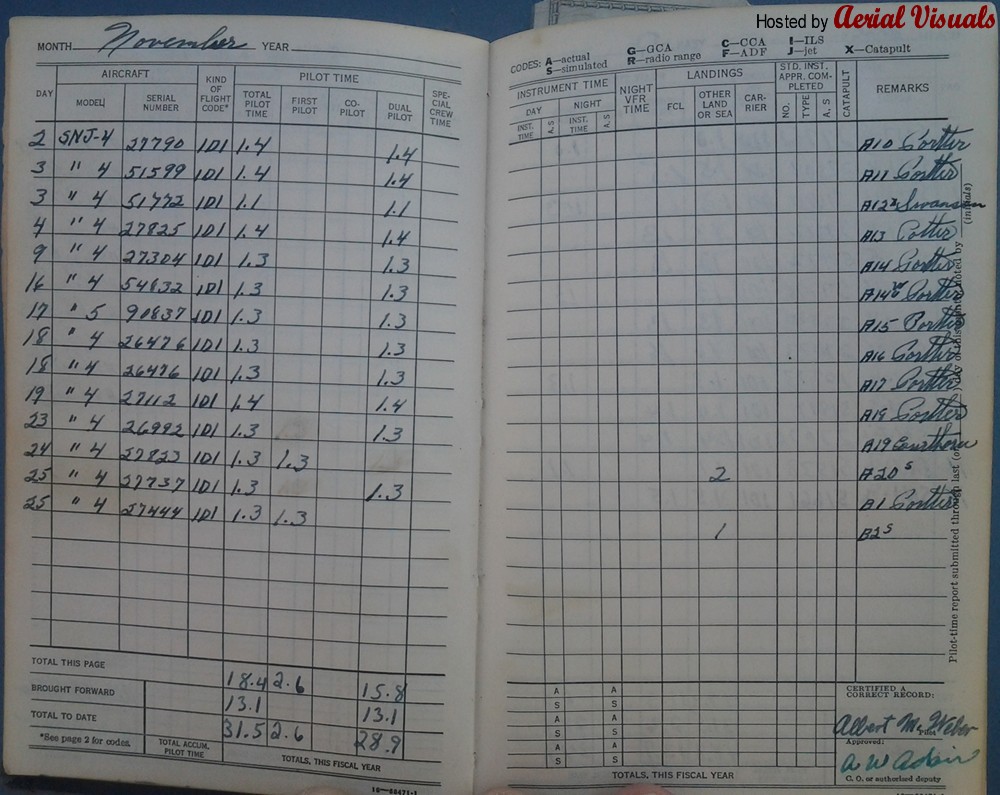 Hosted by Aerial Visuals
MONTH November YEAR
AIRCRAFT KIND OF FLIGHT CODE* PILOT TIME SPECIAL CREW TIME
DAY MODEL SERIAL NUMBER TOTAL PILOT TIME FIRST PILOT CO-PILOT DUAL PILOT
2 SNJ-4 27790 1D1 1.4 1.4
3 " 4 51599 1D1 1.4 1.4
3 " 4 51772 1D1 1.1 1.1
4 " 4 27825 1D1 1.4 1.4
9 " 4 27304 1D1 1.3 1.3
16 " 4 54832 1D1 1.3 1.3
17 " 5 90837 1D1 1.3 1.3
18 " 4 26476 1D1 1.3 1.3
18 " 4 26476 1D1 1.3 1.3
19 " 4 27112 1D1 1.4 1.4
23 " 4 26992 1D1 1.3 1.3
24 " 4 27823 1D1 1.3 1.3
25 " 4 27737 1D1 1.3 1.3
25 " 4 27444 1D1 1.3 1.3
TOTAL THIS PAGE 18.4 2.6 15.8
BROUGHT FORWARD 13.1 13.1
TOTAL TO DATE 31.5 2.6 28.9
*See page 2 for codes. TOTAL ACCUM. PILOT TIME TOTALS, THIS FISCAL YEAR
CODES: A—actual G—GCA C—CCA I—ILS
S—simulated R—radio range F—ADF J—jet X—Catapult
INSTRUMENT TIME NIGHT VFR TIME LANDINGS STD. INST. APPR. COMPLETED CATAPULT REMARKS
DAY NIGHT FCL OTHER LAND OR SEA CARRIER NO. TYPE A, S
INST. TIME A, S INST. TIME A, S
A10
A11
A12 Swanson
A13
A14
A14
A15
A16
A17
A18
A19
2 A20 S
A1
1 B2 S
Pilot-time report submitted through last
(initials)
A A
S S
A A
S S
A A
S S
TOTALS, THIS FISCAL YEAR
CERTIFIED A CORRECT RECORD:
Albert M. Weber
Approved:
A W Adair
C. O. or authorized deputy